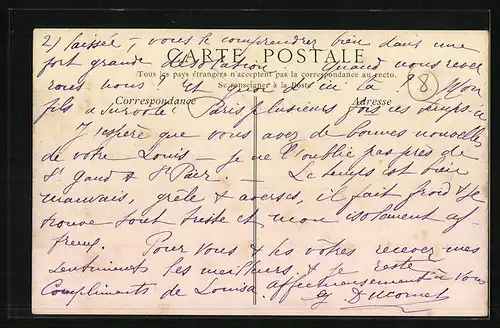 2) laissée, vous le comprendrez bien dans une
fort grande désolation. Quand nous rever
CARTE POSTALE
Tous les pays étrangers n'acceptent pas la correspondance au recto.
Se renseigner à la Poste
rons nous ? Et que je ici là ? Mon
8
Correspondance
Adresse
fils a survolé Paris plusieurs fois ces jours-ci
J'espère que vous avez de bonnes nouvelles
de votre Louis - je ne l'oublie pas près de
St Gaud & St Pair. - Le temps est bien
mauvais, grêle & averses, il fait froid & je
trouve tout triste et mon isolement af
freux. Pour Vous & les vôtres recevez mes
sentiments les meilleurs & je reste
affectueusement à Vous
Compliments de Louisa